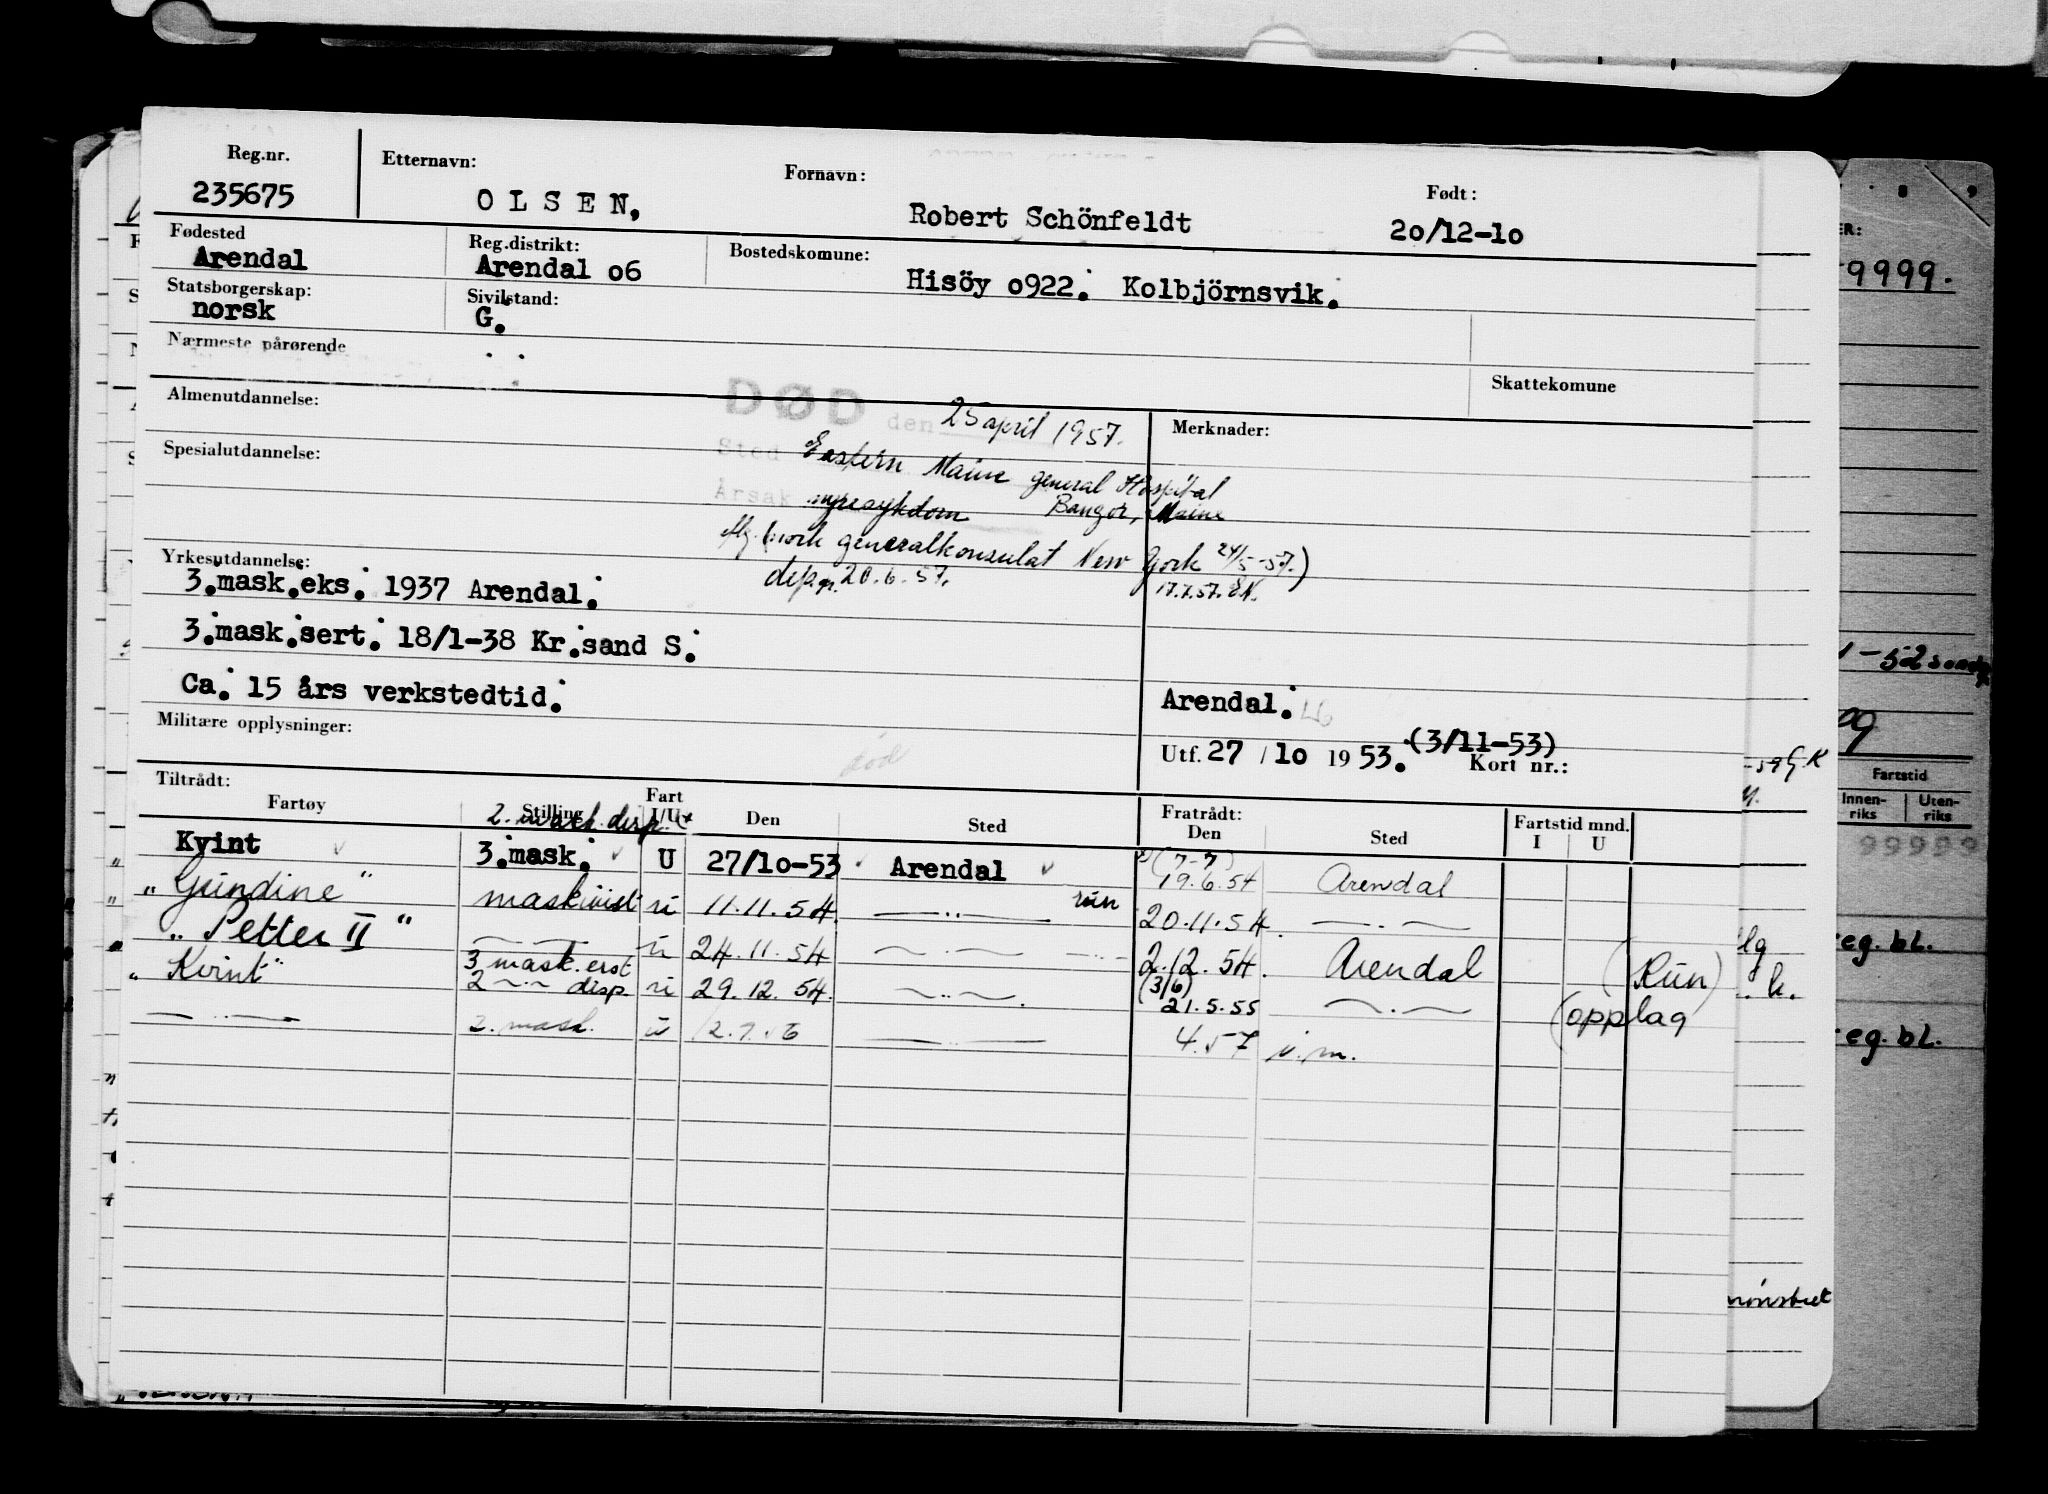 Reg.nr. Etternavn: Fornavn: Født:
235675 OLSEN, Robert Schönfeldt 20/12-10
Fødested Reg.distrikt: Bostedskomune:
Arendal Arendal 06 Hisöy 0922. Kolbjörnsvik.
Statsborgerskap: Sivilstand:
norsk G.
Nærmeste pårørende Skattekomune
Almenutdannelse: DØD den 25 april 1957. Merknader:
Spesialutdannelse: Sted Eastern Maine general Hospital
Årsak nyresykdom Bangor, Maine
generalkonsulat New York 24/5-57.)
Yrkesutdannelse: 20.6.57. 17.7.57.
3.mask.eks. 1937 Arendal.
3.mask.sert. 18/1-38 Kr.sand S.
Ca. 15 års verkstedtid. Arendal.
Militære opplysninger: død
Utf. 27 / 10 1953. (3/11-53) Kort nr.:
Tiltrådt: Fratrådt:
Fartøy Stilling Fart I/U Den Sted Den Sted Fartstid mnd. I U
2. mask. disp.
Kvint 3.mask. U 27/10-53 Arendal (7-7) 19.6.54 Arendal
"Gundine" maskinist 11.11.54 20.11.54
"Petter II" 24.11.54 2.12.54. Arendal
"Kvint" 3 mask. erst 29.12.54 (3/6) 21.5.55 (opplag
2 disp.
2. mask. 4.57
9999.
Fartstid
Innenriks Utenriks
99999
eg. bl.
eg. bl.
mønstret